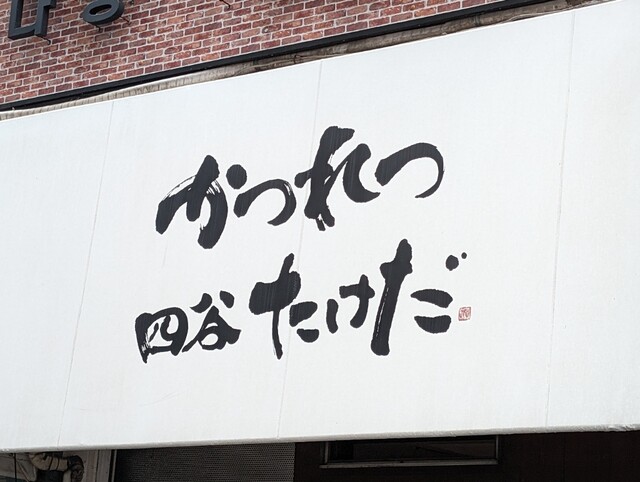 かつれつ
四谷たけだ